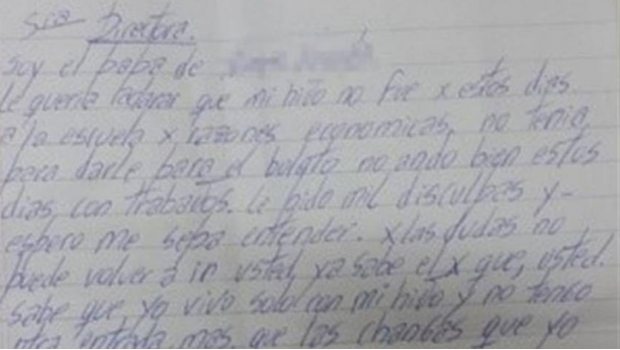 Sra Directora.
Soy el papa de
Le queria que mi hijo no fue x estos dias
a la escuela x razones economicas, no tenia
para darle para el boleto no ando bien estos
dias con trabajos. Le pido mil disculpas y-
espero me sepa entender. x las dudas no
puede volver a ir usted ya sabe el x que, usted.
sabe que, yo vivo solo con mi hijo y no tengo
otra entrada mas que las changas que yo